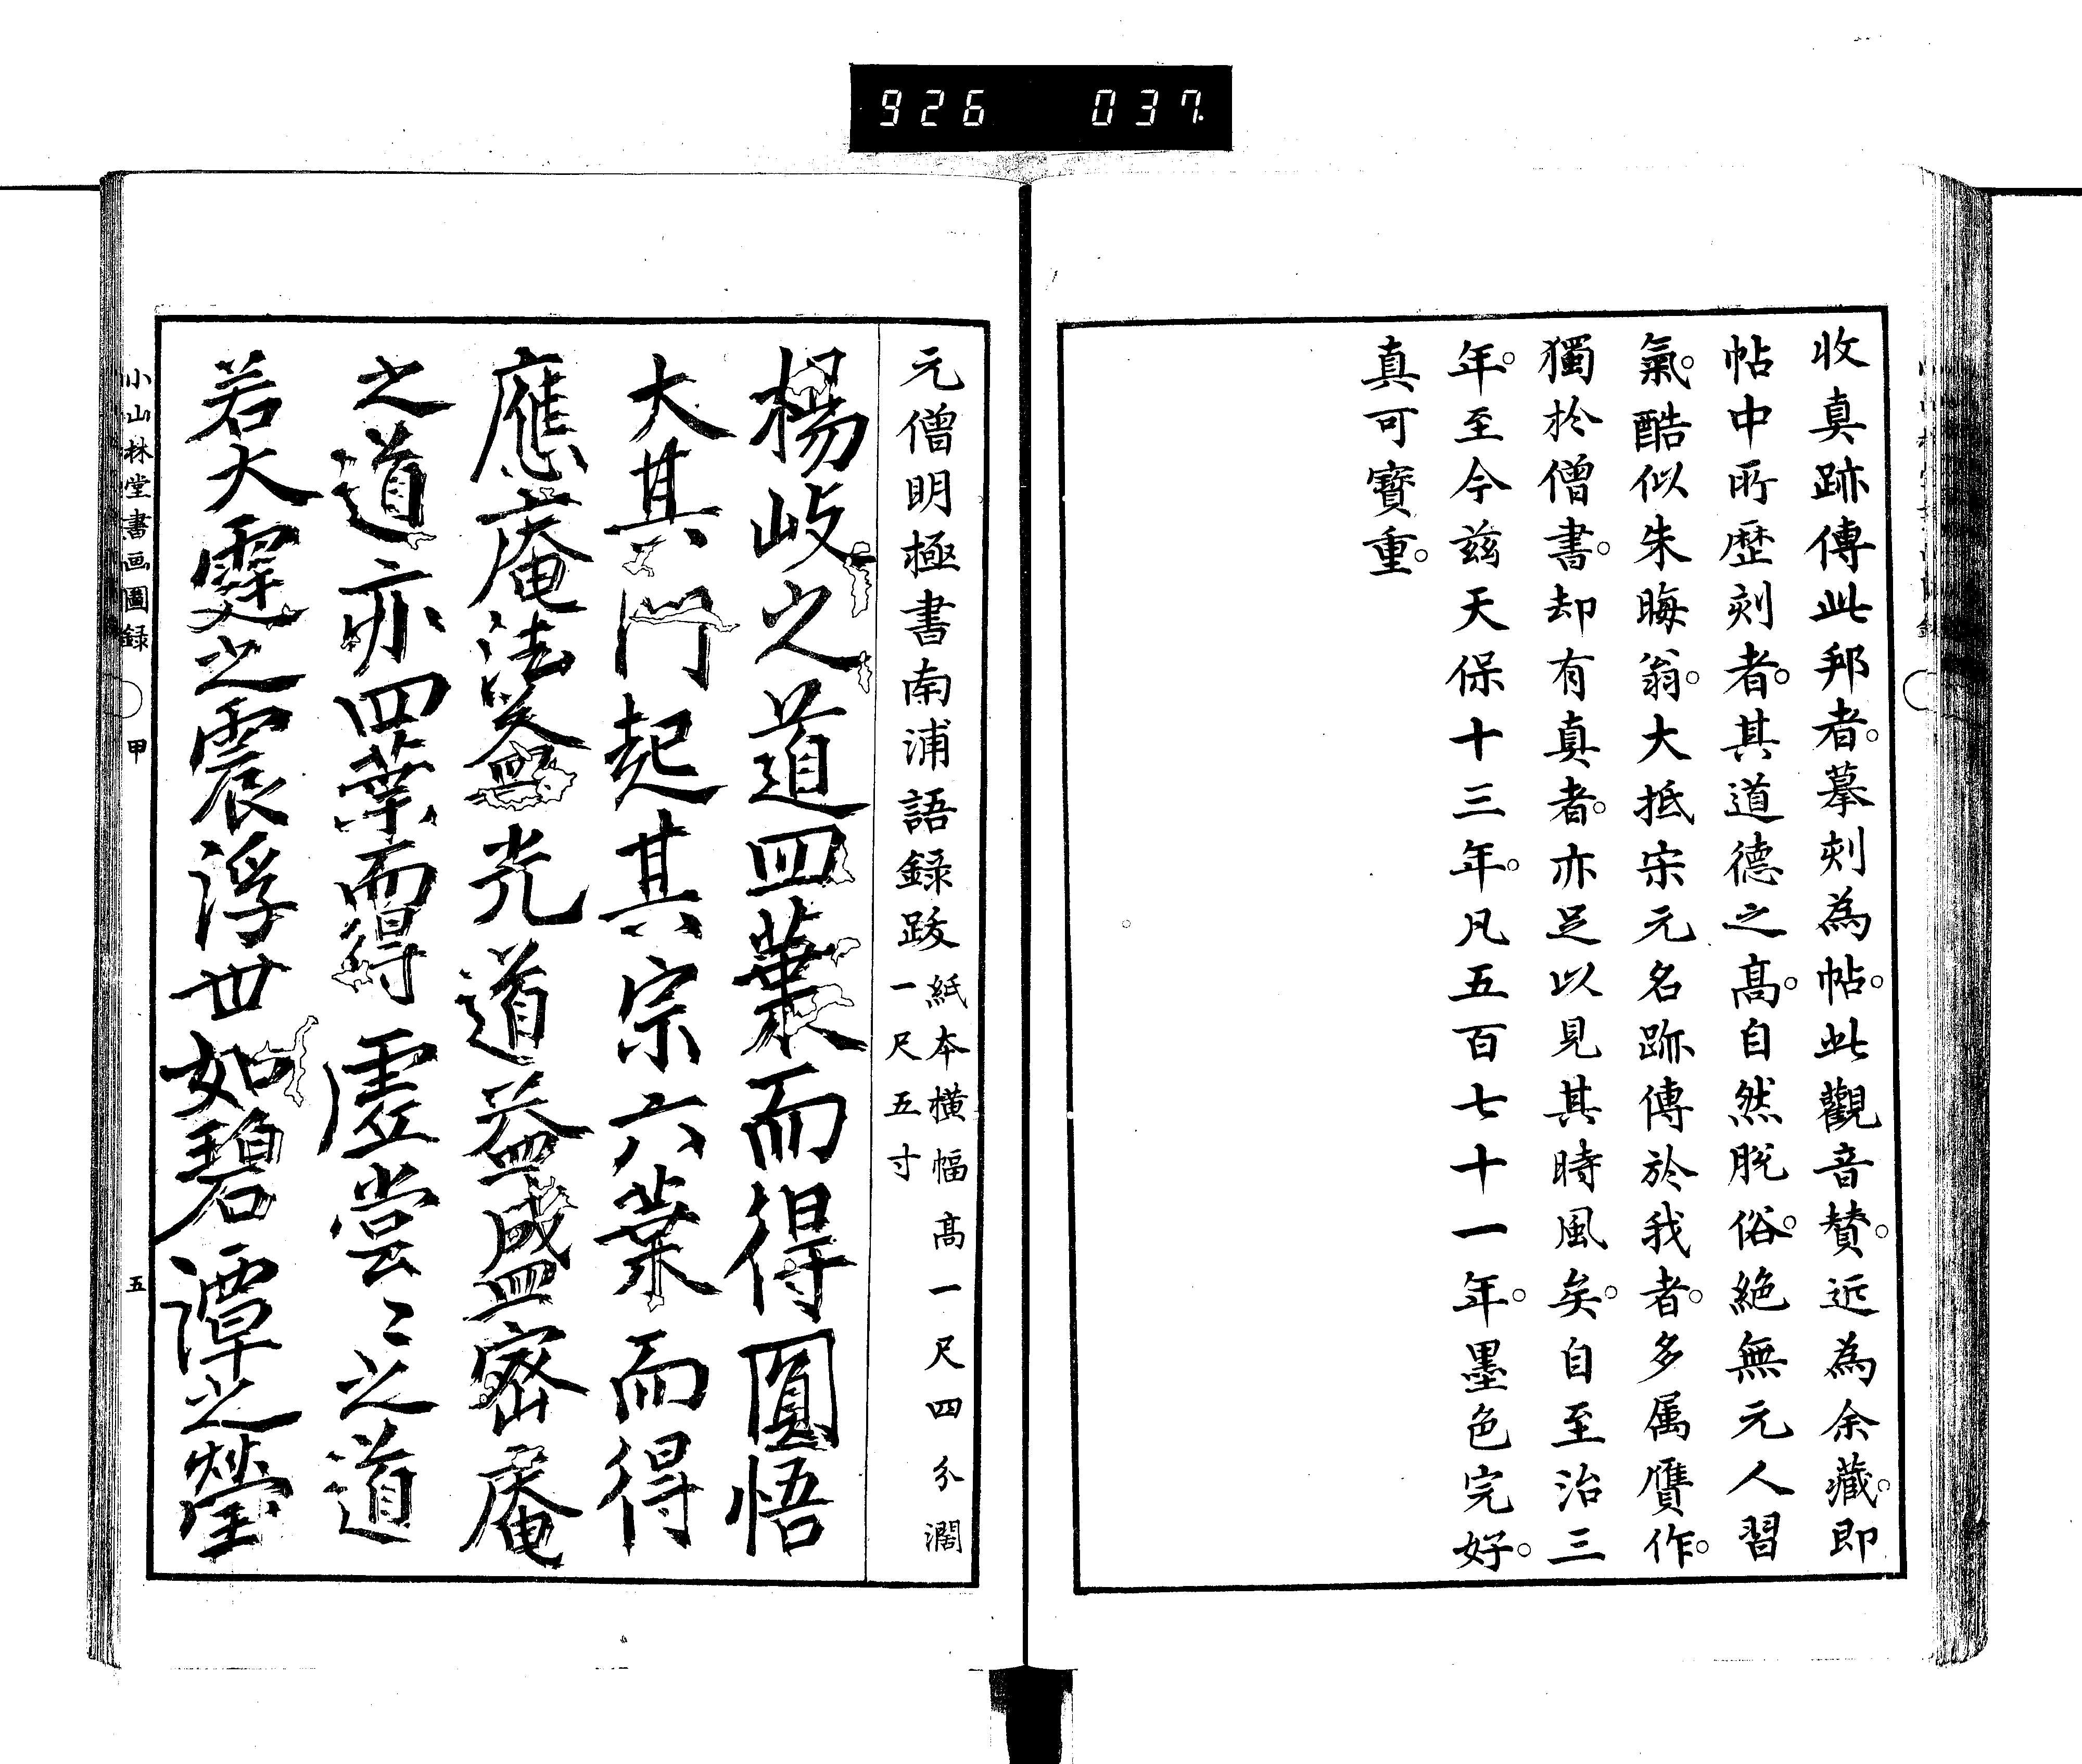 926 037
收真跡傳此邦者。摹刻為帖。此觀音賛。近為余藏。即
帖中所歴刻者。其道德之髙。自然脱俗。絶無元人習
氣。酷似朱晦翁。大抵宋元名跡傳於我者。多属贋作。
獨於僧書。却有真者。亦足以見其時風矣。自至治三
年。至今茲天保十三年。凡五百七十一年。墨色完好。
真可寳重。
元僧明極書南浦語録跋
紙本横幅髙一尺四分濶
一尺五寸
楊岐之道四葉而得圓悟
大其門起其宗六葉而得
應菴法益光道益盛密菴
之道亦四葉而得虚堂〻之道
若大霆之震浮世如碧潭之瑩
小山林堂書画圖録
甲
五